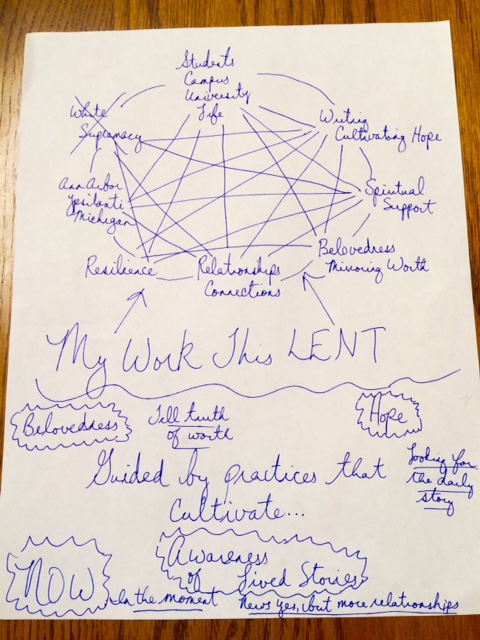 Students
Campus
University
Life
White
Supremacy
Writing
Cultivating Hope
Ann Arbor
Ypsilanti
Michigan
Spiritual
Support
Resilience
Relationships
Connections
Belovedness
Mirroring Worth
My Work This LENT
Belovedness
Tell truth
of worth
Hope
Guided by practices that
cultivate...
Looking for
the daily
story
NOW
In the moment
Awareness
of Lived Stories
News yes, but more relationships